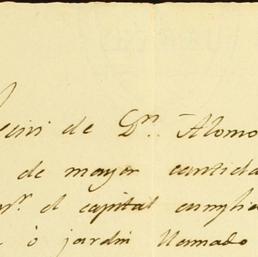 de Dn. Alonso
de mayor cantida
el capital cumpli
ó jardin llamado